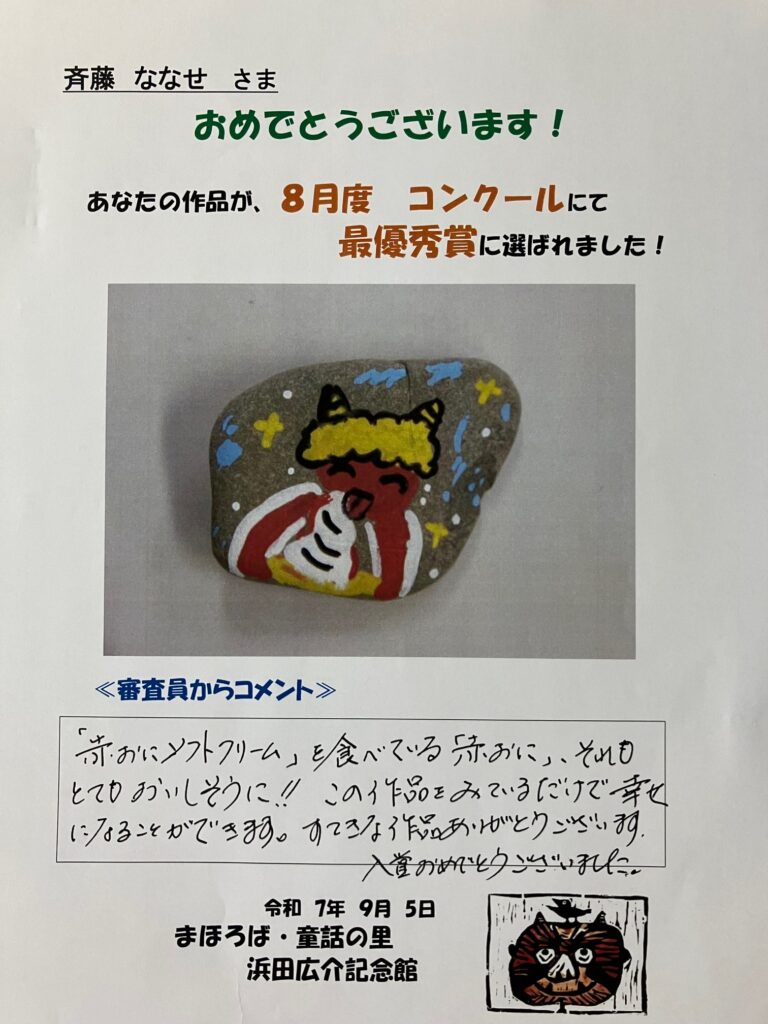 斉藤　ななせ　さま
おめでとうございます！
あなたの作品が、８月度　コンクールにて
最優秀賞に選ばれました！
≪審査員からコメント≫
「赤おにソフトクリーム」を食べている「赤おに」、それも
とてもおいしそうに!! この作品をみているだけで幸せ
になることができます。すてきな作品ありがとうございます。
入賞おめでとうございました。
令和 7年 9月 5日
まほろば・童話の里
浜田広介記念館